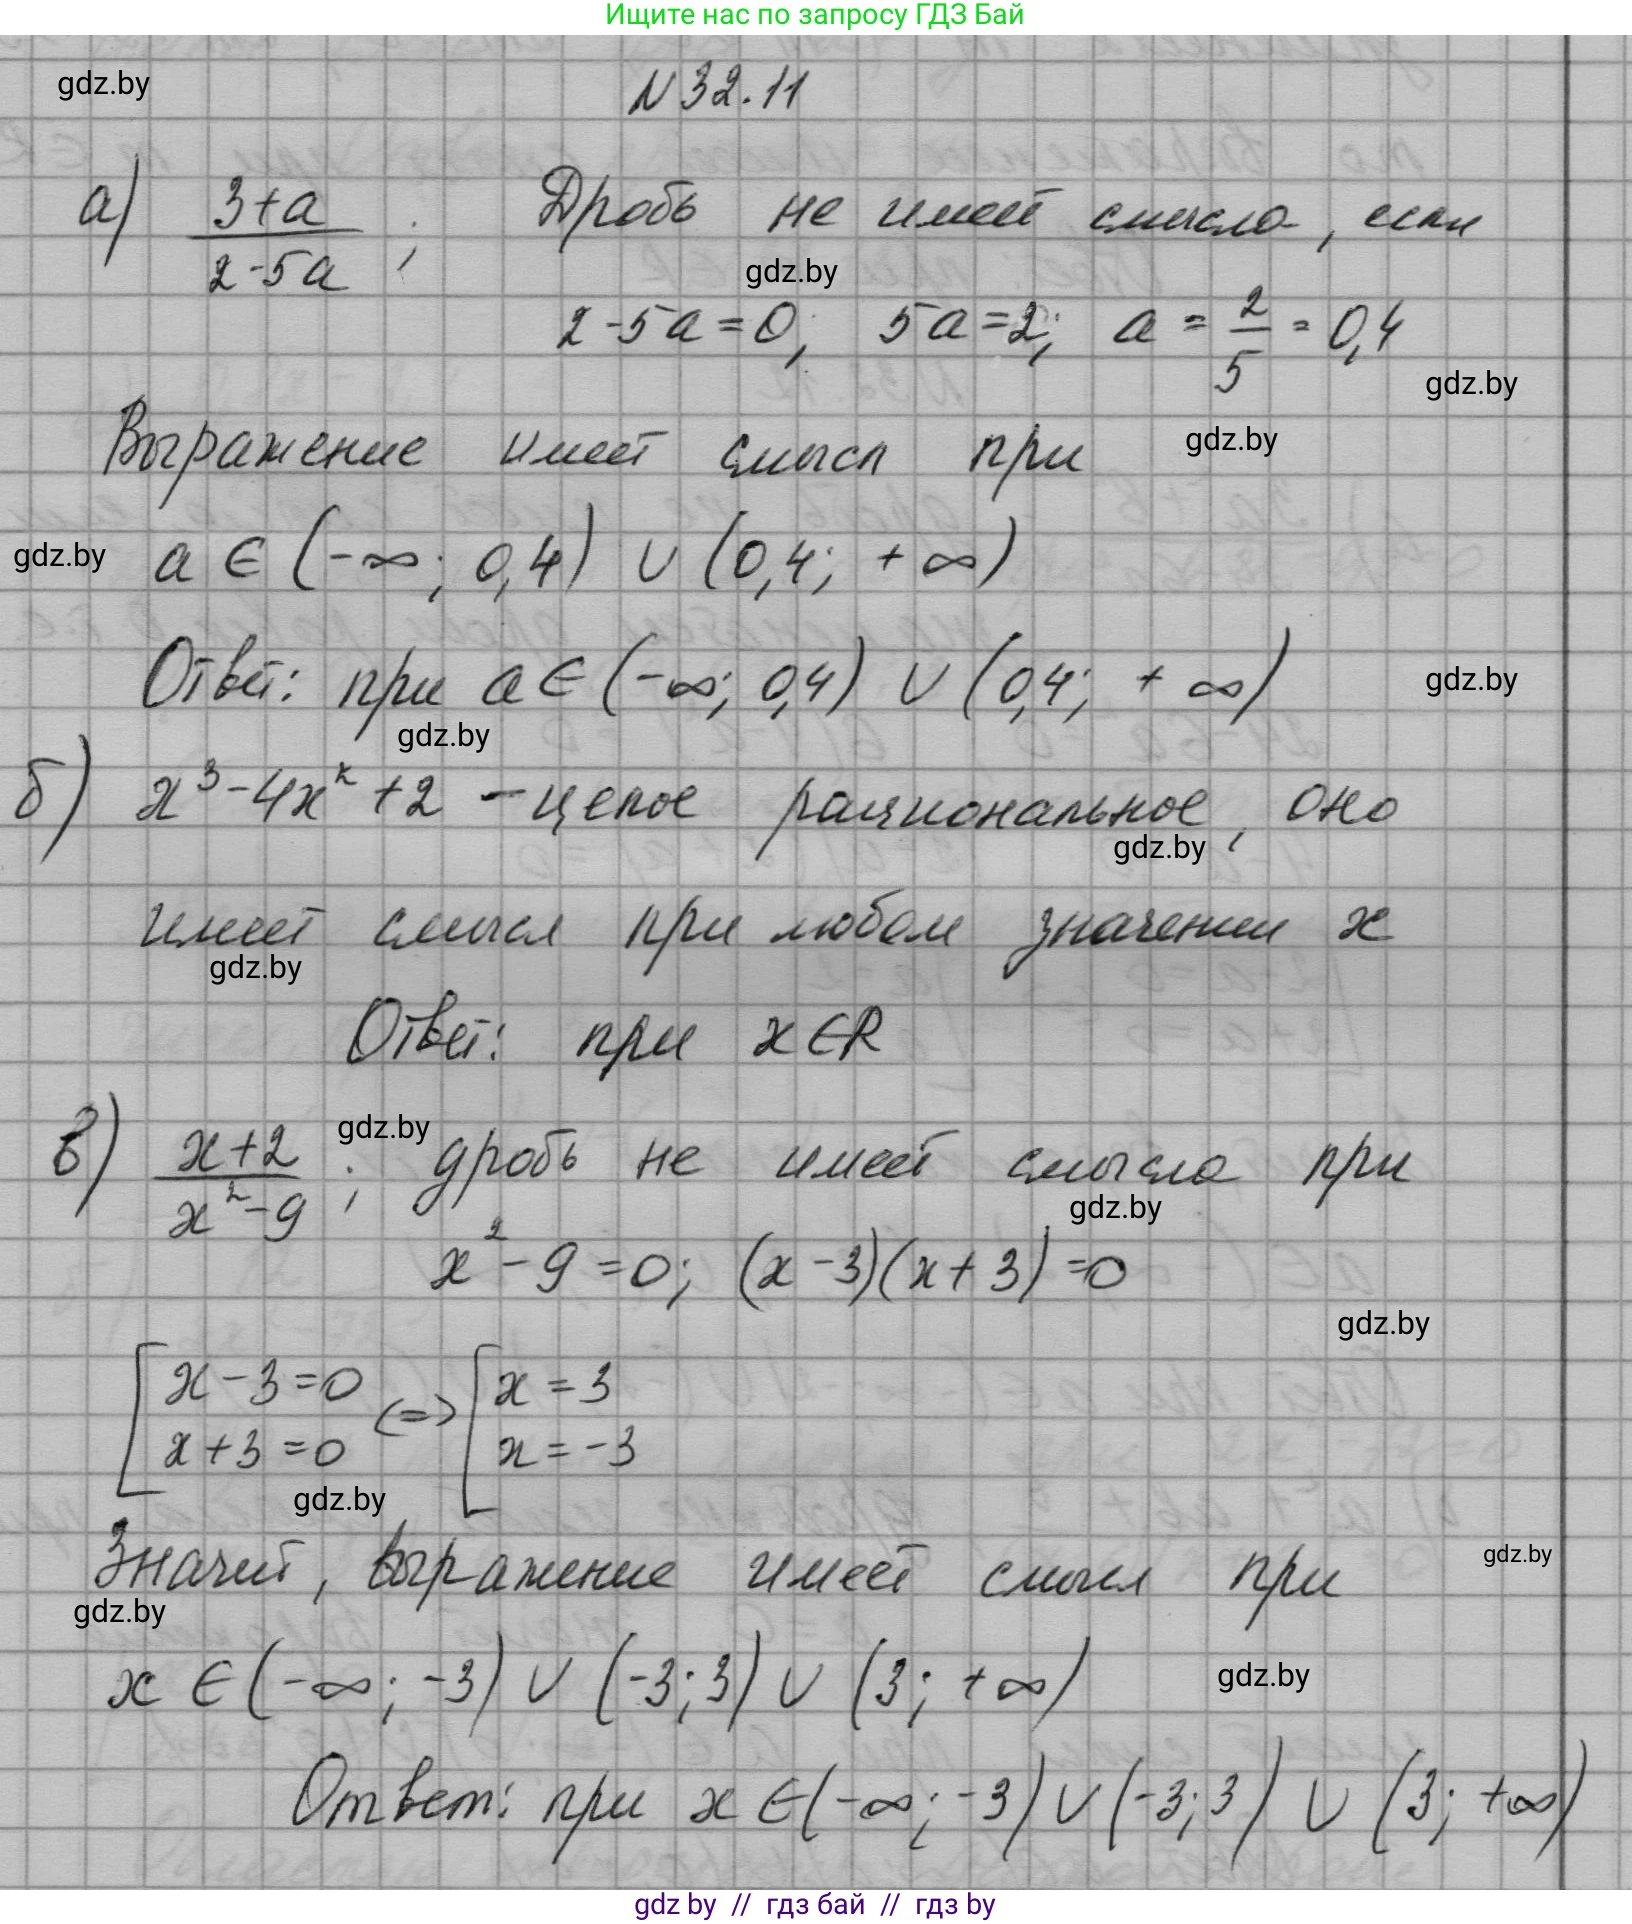 Ищите нас по запросу ГДЗ Бай
gdz.by
N 32.11
а) (3+a)/(2-5a); Дробь не имеет смысла, если
gdz.by
2-5a=0; 5a=2; a = 2/5 = 0,4
gdz.by
Выражение имеет смысл при
gdz.by
gdz.by
a ∈ (-∞; 0,4) ∪ (0,4; +∞)
Ответ: при a ∈ (-∞; 0,4) ∪ (0,4; +∞)
gdz.by
gdz.by
б) x³-4x²+2 - целое рациональное, оно
gdz.by
имеет смысл при любом значении x
gdz.by
Ответ: при x∈R
gdz.by
в) (x+2)/(x²-9); дробь не имеет смысла при
gdz.by
x²-9=0; (x-3)(x+3)=0
gdz.by
[x-3=0 <=> [x=3
x+3=0 x=-3
gdz.by
Значит, выражение имеет смысл при
gdz.by
gdz.by
x ∈ (-∞; -3) ∪ (-3; 3) ∪ (3; +∞)
gdz.by
Ответ: при x ∈ (-∞; -3) ∪ (-3; 3) ∪ (3; +∞)
gdz by // гдз бай // гдз by